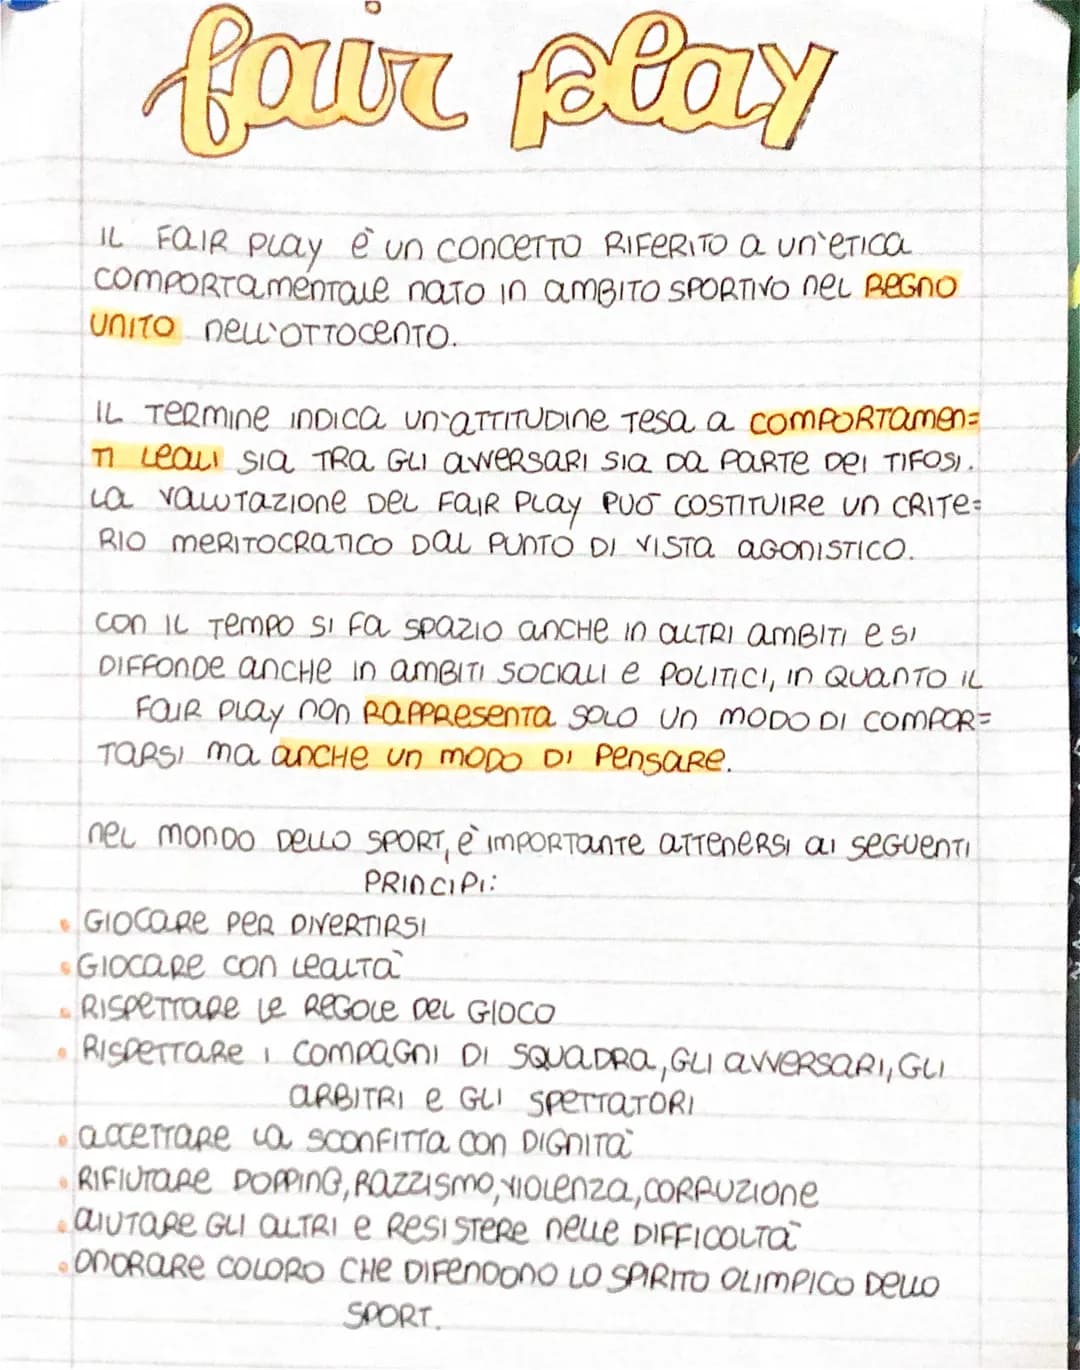 fair play
IL FAIR PLAY è UN CONCETTO RIFERITO A UN'ETICA
COMPORTAMENTALE NATO IN AMBITO SPORTIVO NEL REGNO
UNITO NELL'OTTOCENTO.
IL TERMINE INDICA UN'ATTITUDINE TESA A COMPORTAMEN=
TI LEALI SIA TRA GLI AVVERSARI SIA DA PARTE DEI TIFOSI.
LA VALUTAZIONE DEL FAIR PLAY PUÒ COSTITUIRE UN CRITE=
RIO MERITOCRATICO DAL PUNTO DI VISTA AGONISTICO.
CON IL TEMPO SI FA SPAZIO ANCHE IN ALTRI AMBITI E SI
DIFFONDE ANCHE IN AMBITI SOCIALI E POLITICI, IN QUANTO IL
FAIR PLAY NON RAPPRESENTA SOLO UN MODO DI COMPOR=
TARSI MA ANCHE UN MODO DI PENSARE.
NEL MONDO DELLO SPORT, È IMPORTANTE ATTENERSI AI SEGUENTI
PRINCIPI:
• GIOCARE PER DIVERTIRSI
• GIOCARE CON LEALTÀ
• RISPETTARE LE REGOLE DEL GIOCO
• RISPETTARE I COMPAGNI DI SQUADRA, GLI AVVERSARI, GLI
ARBITRI E GLI SPETTATORI
• ACCETTARE LA SCONFITTA CON DIGNITÀ
• RIFIUTARE DOPPING, RAZZISMO, VIOLENZA, CORRUZIONE
• AIUTARE GLI ALTRI E RESISTERE NELLE DIFFICOLTÀ
• ONORARE COLORO CHE DIFENDONO LO SPIRITO OLIMPICO DELLO
SPORT.